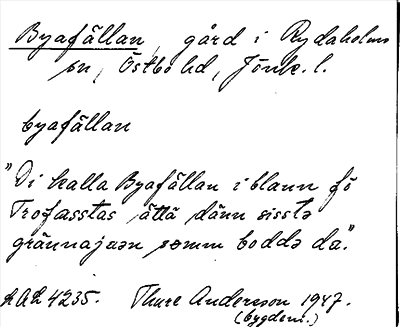 Byafällan, gård i Rydaholms
sn, Östbo hd, Jönk. l.
byafällan
"Di kalla Byafällan iblann fö
Trofasstas ättä dänn sisstə
grännajaən somm boddə da."
AAL 4235. Thure Andersson 1947.
(bygdem.)